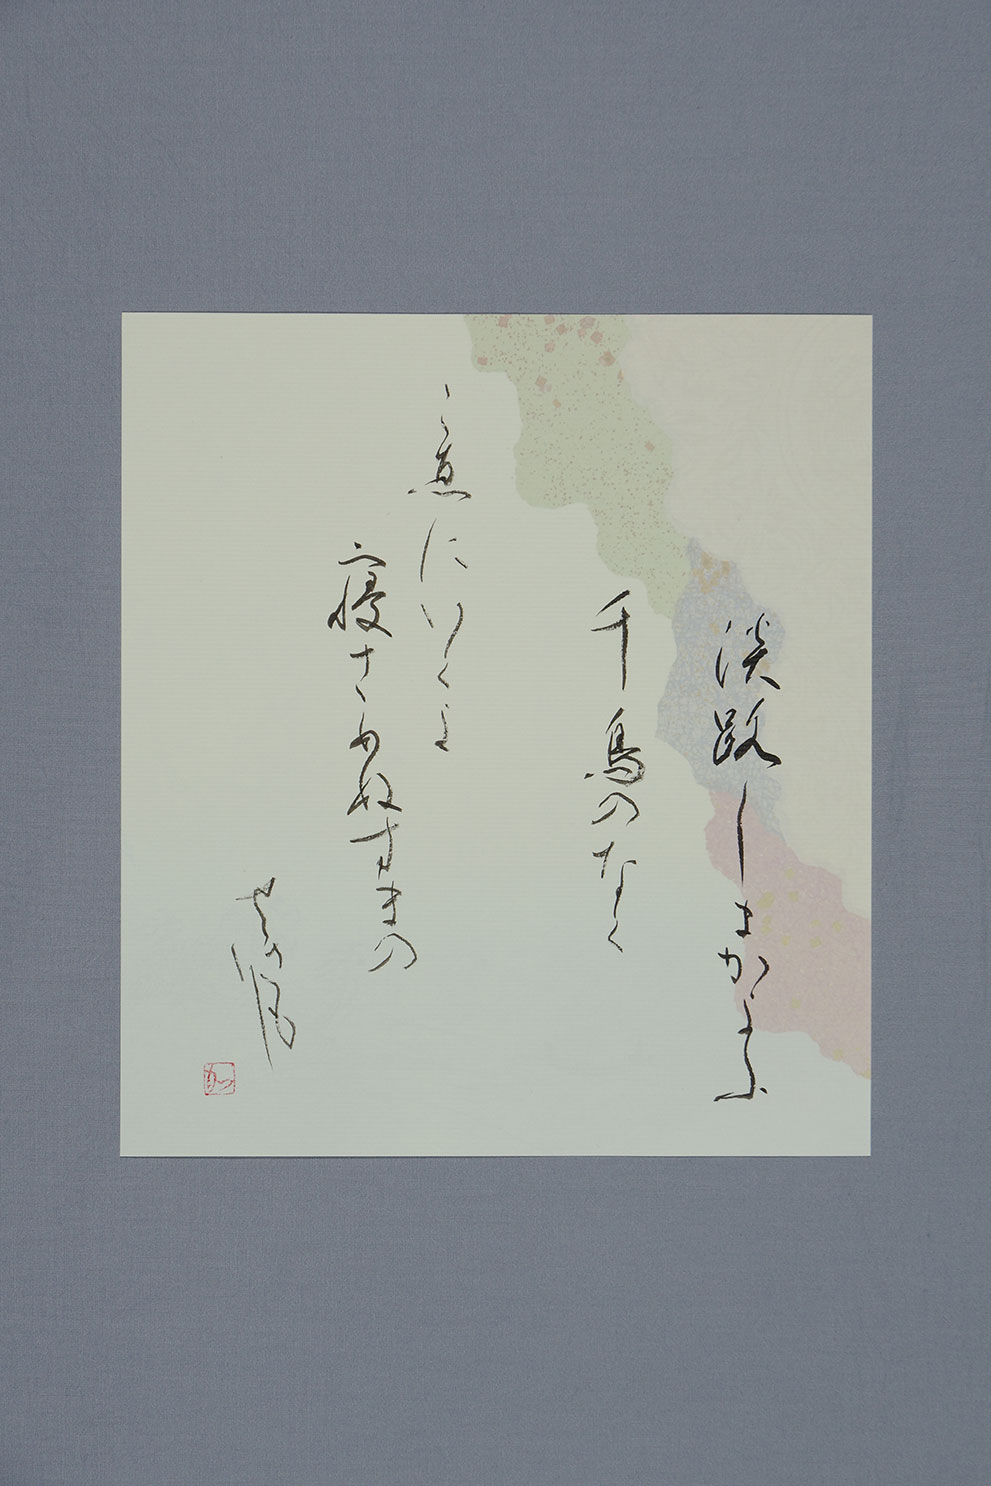 淡路しまかよふ
千鳥のなく
こ恵にいくよ
寝さめぬすまの